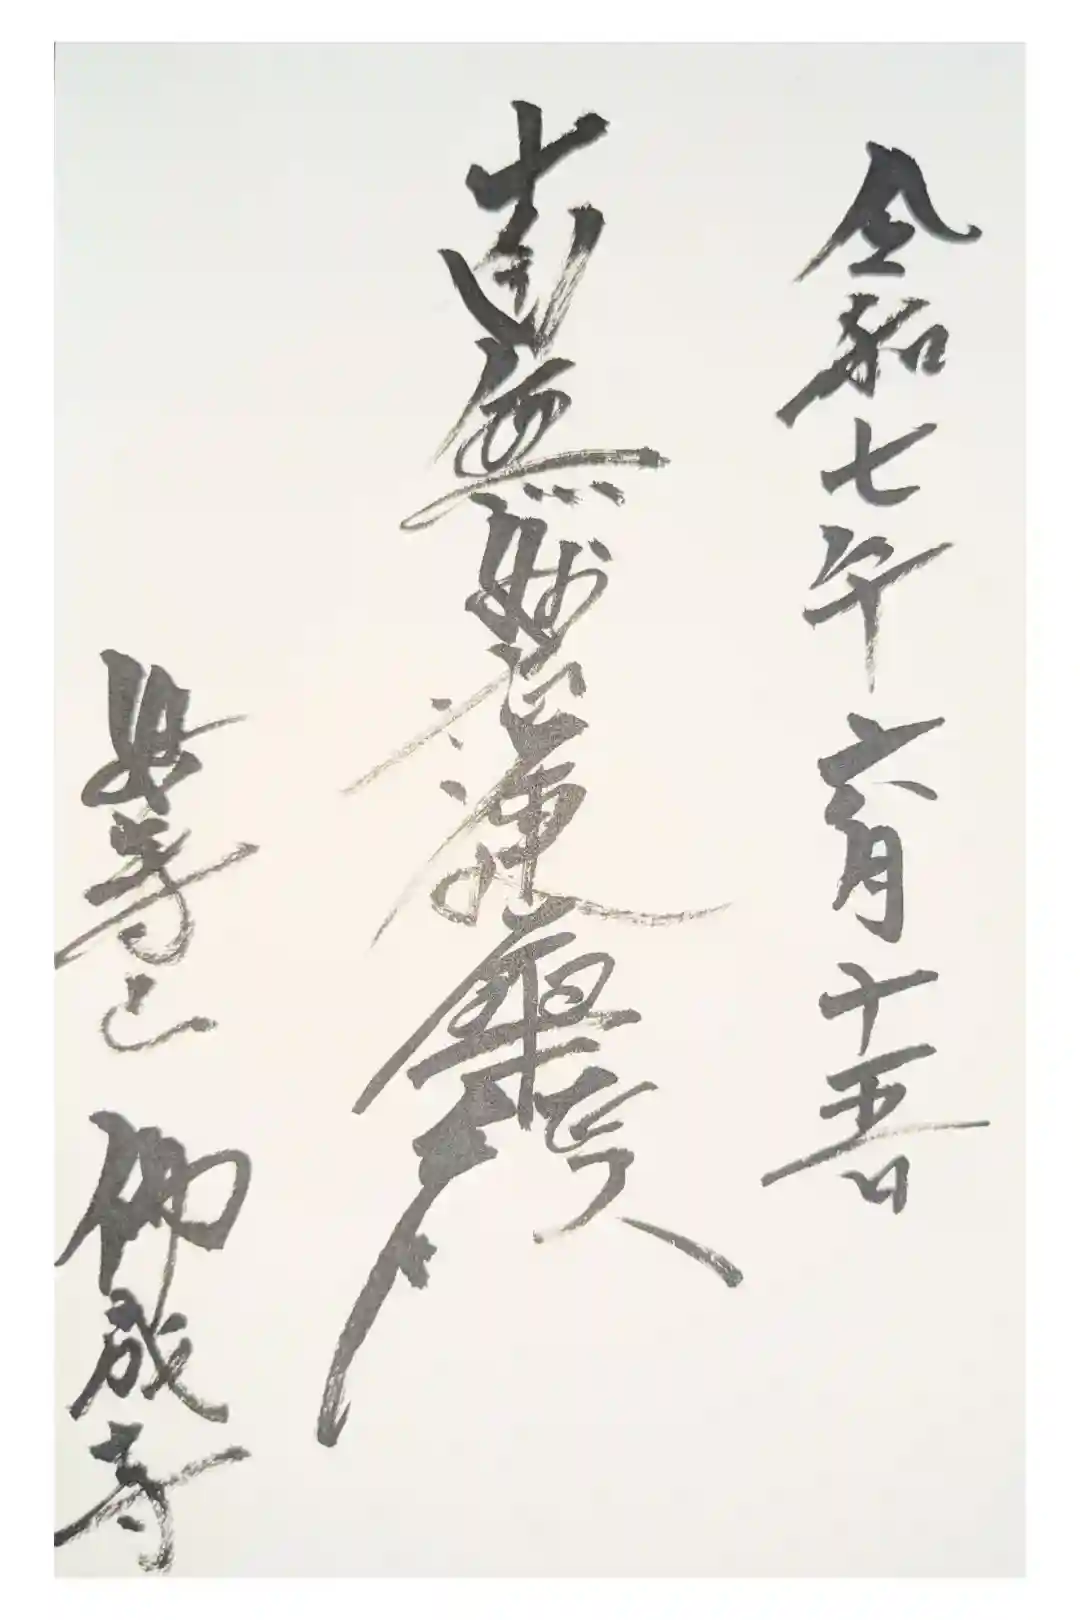 令和七年六月十五日
南無妙法蓮華経
妙 山 佛成寺